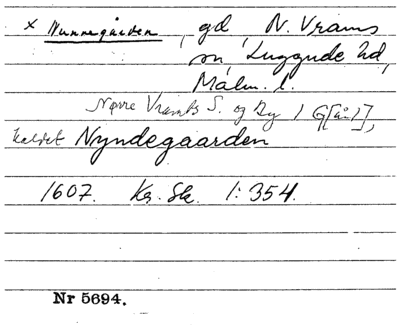 x Nunnegården, gd, N. Vrams
sn, Luggude hd,
Malm. l.
Nørre Vrambs S. og By 1 G[ård],
kaldet Nyndegaarden
1607. Kr. Sk. 1:354.
Nr 5694.